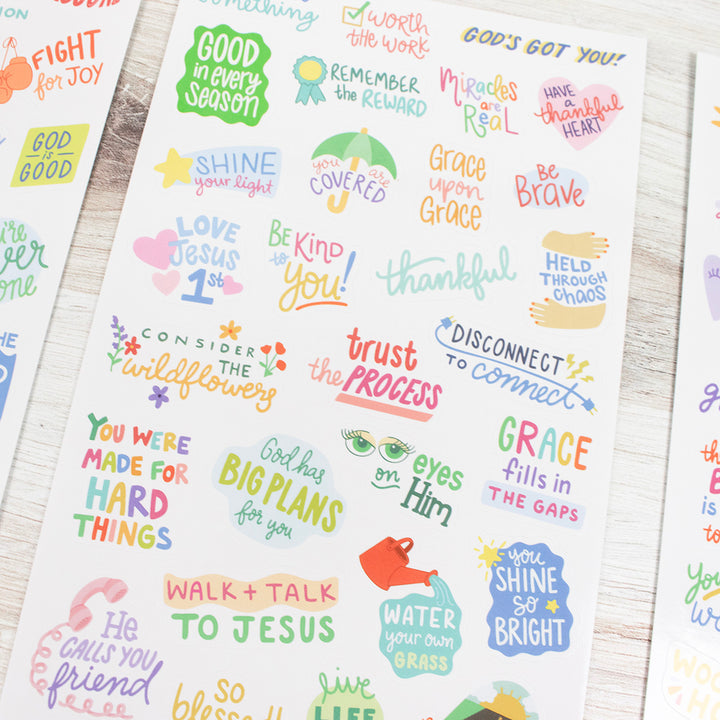 FIGHT
for JOY
GOD
is
GOOD
something
worth
the work
GOD'S GOT YOU!
GOOD
in every
SEASON
REMEMBER
the REWARD
Miracles
are
Real
HAVE
a
thankful
HEART
SHINE
your light
you are
COVERED
Grace
upon
Grace
Be
Brave
LOVE
Jesus
1st
BE KIND
to
you!
thankful
HELD
THROUGH
CHAOS
CONSIDER
THE
wildflowers
trust
the PROCESS
DISCONNECT
TO connect
YOU WERE
MADE FOR
HARD
THINGS
God has
BIG PLANS
for you
eyes
on Him
GRACE
fills in
THE GAPS
WALK + TALK
TO JESUS
WATER
your own
GRASS
you
SHINE
so
BRIGHT
He
CALLS YOU
friend
SO
blessed
live
LIFE